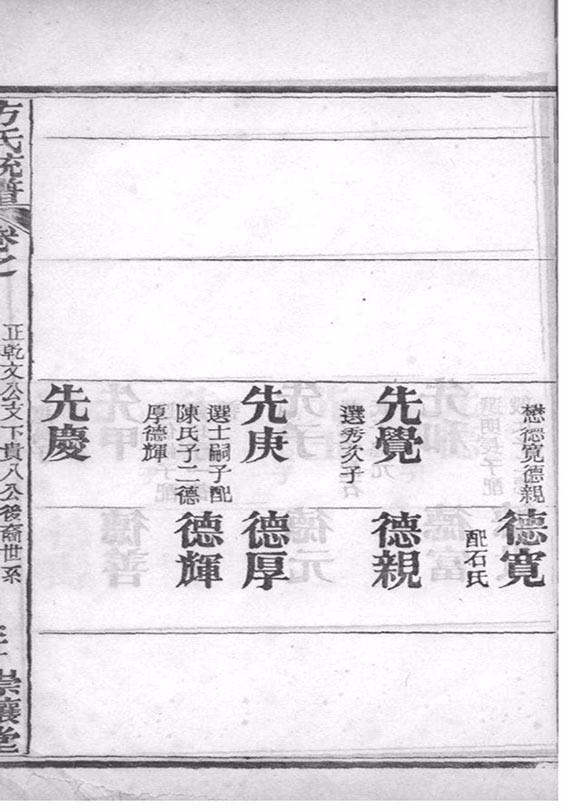 懋德寬德親
先覺
選秀次子
先庚
選士嗣子配
陳氏子二德
厚德輝
先慶
德寬
配石氏
德親
德厚
德輝
方氏統譜
卷之
正乾文公支下貴八公後裔世系
崇讓堂